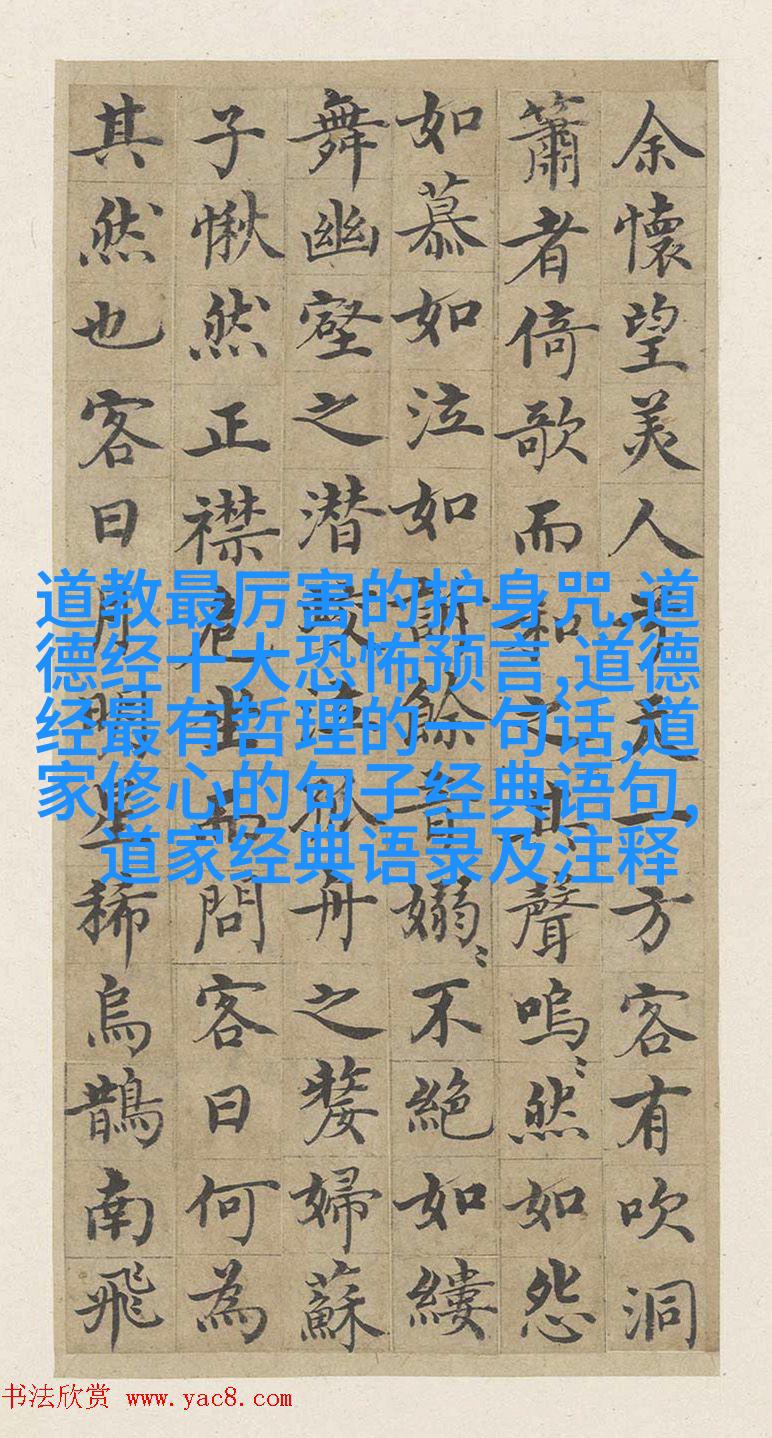 余懷望美人一方客有吹洞
簫者倚歌而和之其聲嗚〻然如怨
如慕如泣如訴餘音嫋〻不絕如縷
舞幽壑之潜蛟泣孤舟之嫠婦蘇
子愀然正襟危坐而問客曰何為
其然也客曰月明星稀烏鵲南飛
道教最厉害的护身咒,道
德经十大恐怖预言,道德
经最有哲理的一句话,道
家修心的句子经典语句,
道家经典语录及注释
书法欣赏 www.yac8.com